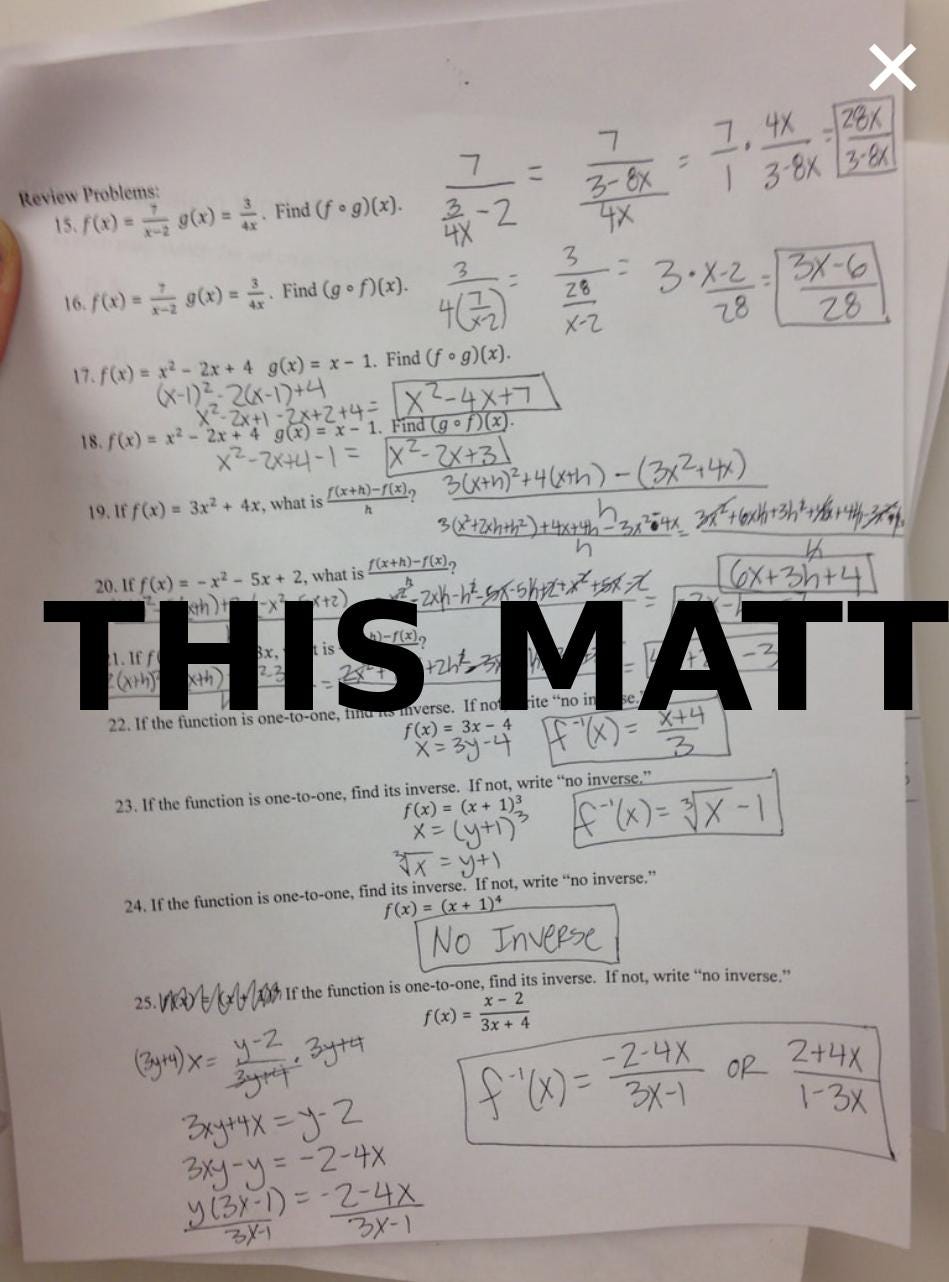 Review Problems:
15. f(x) = 7/(x−2) g(x) = 3/(4x). Find (f ∘ g)(x).
7/(3/(4X) - 2) = 7/((3-8X)/(4X)) = 7/1 · 4X/(3-8X) = 28X/(3-8X)
16. f(x) = 7/(x−2) g(x) = 3/(4x). Find (g ∘ f)(x).
3/(4(7/(x-2))) = 3/(28/(X-2)) = 3 · (X-2)/28 = (3X-6)/28
17. f(x) = x² − 2x + 4 g(x) = x − 1. Find (f ∘ g)(x).
(x-1)² - 2(x-1)+4
x²-2x+1 -2x+2+4 = x²-4x+7
18. f(x) = x² − 2x + 4 g(x) = x − 1. Find (g ∘ f)(x).
x²-2x+4-1 = x²-2x+3
19. If f(x) = 3x² + 4x, what is (f(x+h)−f(x))/h?
(3(x+h)²+4(x+h) - (3x²+4x))/h
(3(x²+2xh+h²)+4x+4h - 3x² - 4x)/h =
6x+3h+4
20. If f(x) = −x² − 5x + 2, what is (f(x+h)−f(x))/h?
THIS MATT
22. If the function is one-to-one, find its inverse. If not, write “no inverse.”
f(x) = 3x − 4
x = 3y-4
f⁻¹(x) = (x+4)/3
23. If the function is one-to-one, find its inverse. If not, write “no inverse.”
f(x) = (x + 1)³
x = (y+1)³
∛x = y+1
f⁻¹(x) = ∛x - 1
24. If the function is one-to-one, find its inverse. If not, write “no inverse.”
f(x) = (x + 1)⁴
No Inverse
25. If the function is one-to-one, find its inverse. If not, write “no inverse.”
f(x) = (x − 2)/(3x + 4)
(3y+4)x = (y-2)/(3y+4) · 3y+4
3xy+4x = y-2
3xy-y = -2-4x
y(3x-1)/(3x-1) = (-2-4x)/(3x-1)
f⁻¹(x) = (-2-4x)/(3x-1) OR (2+4x)/(1-3x)